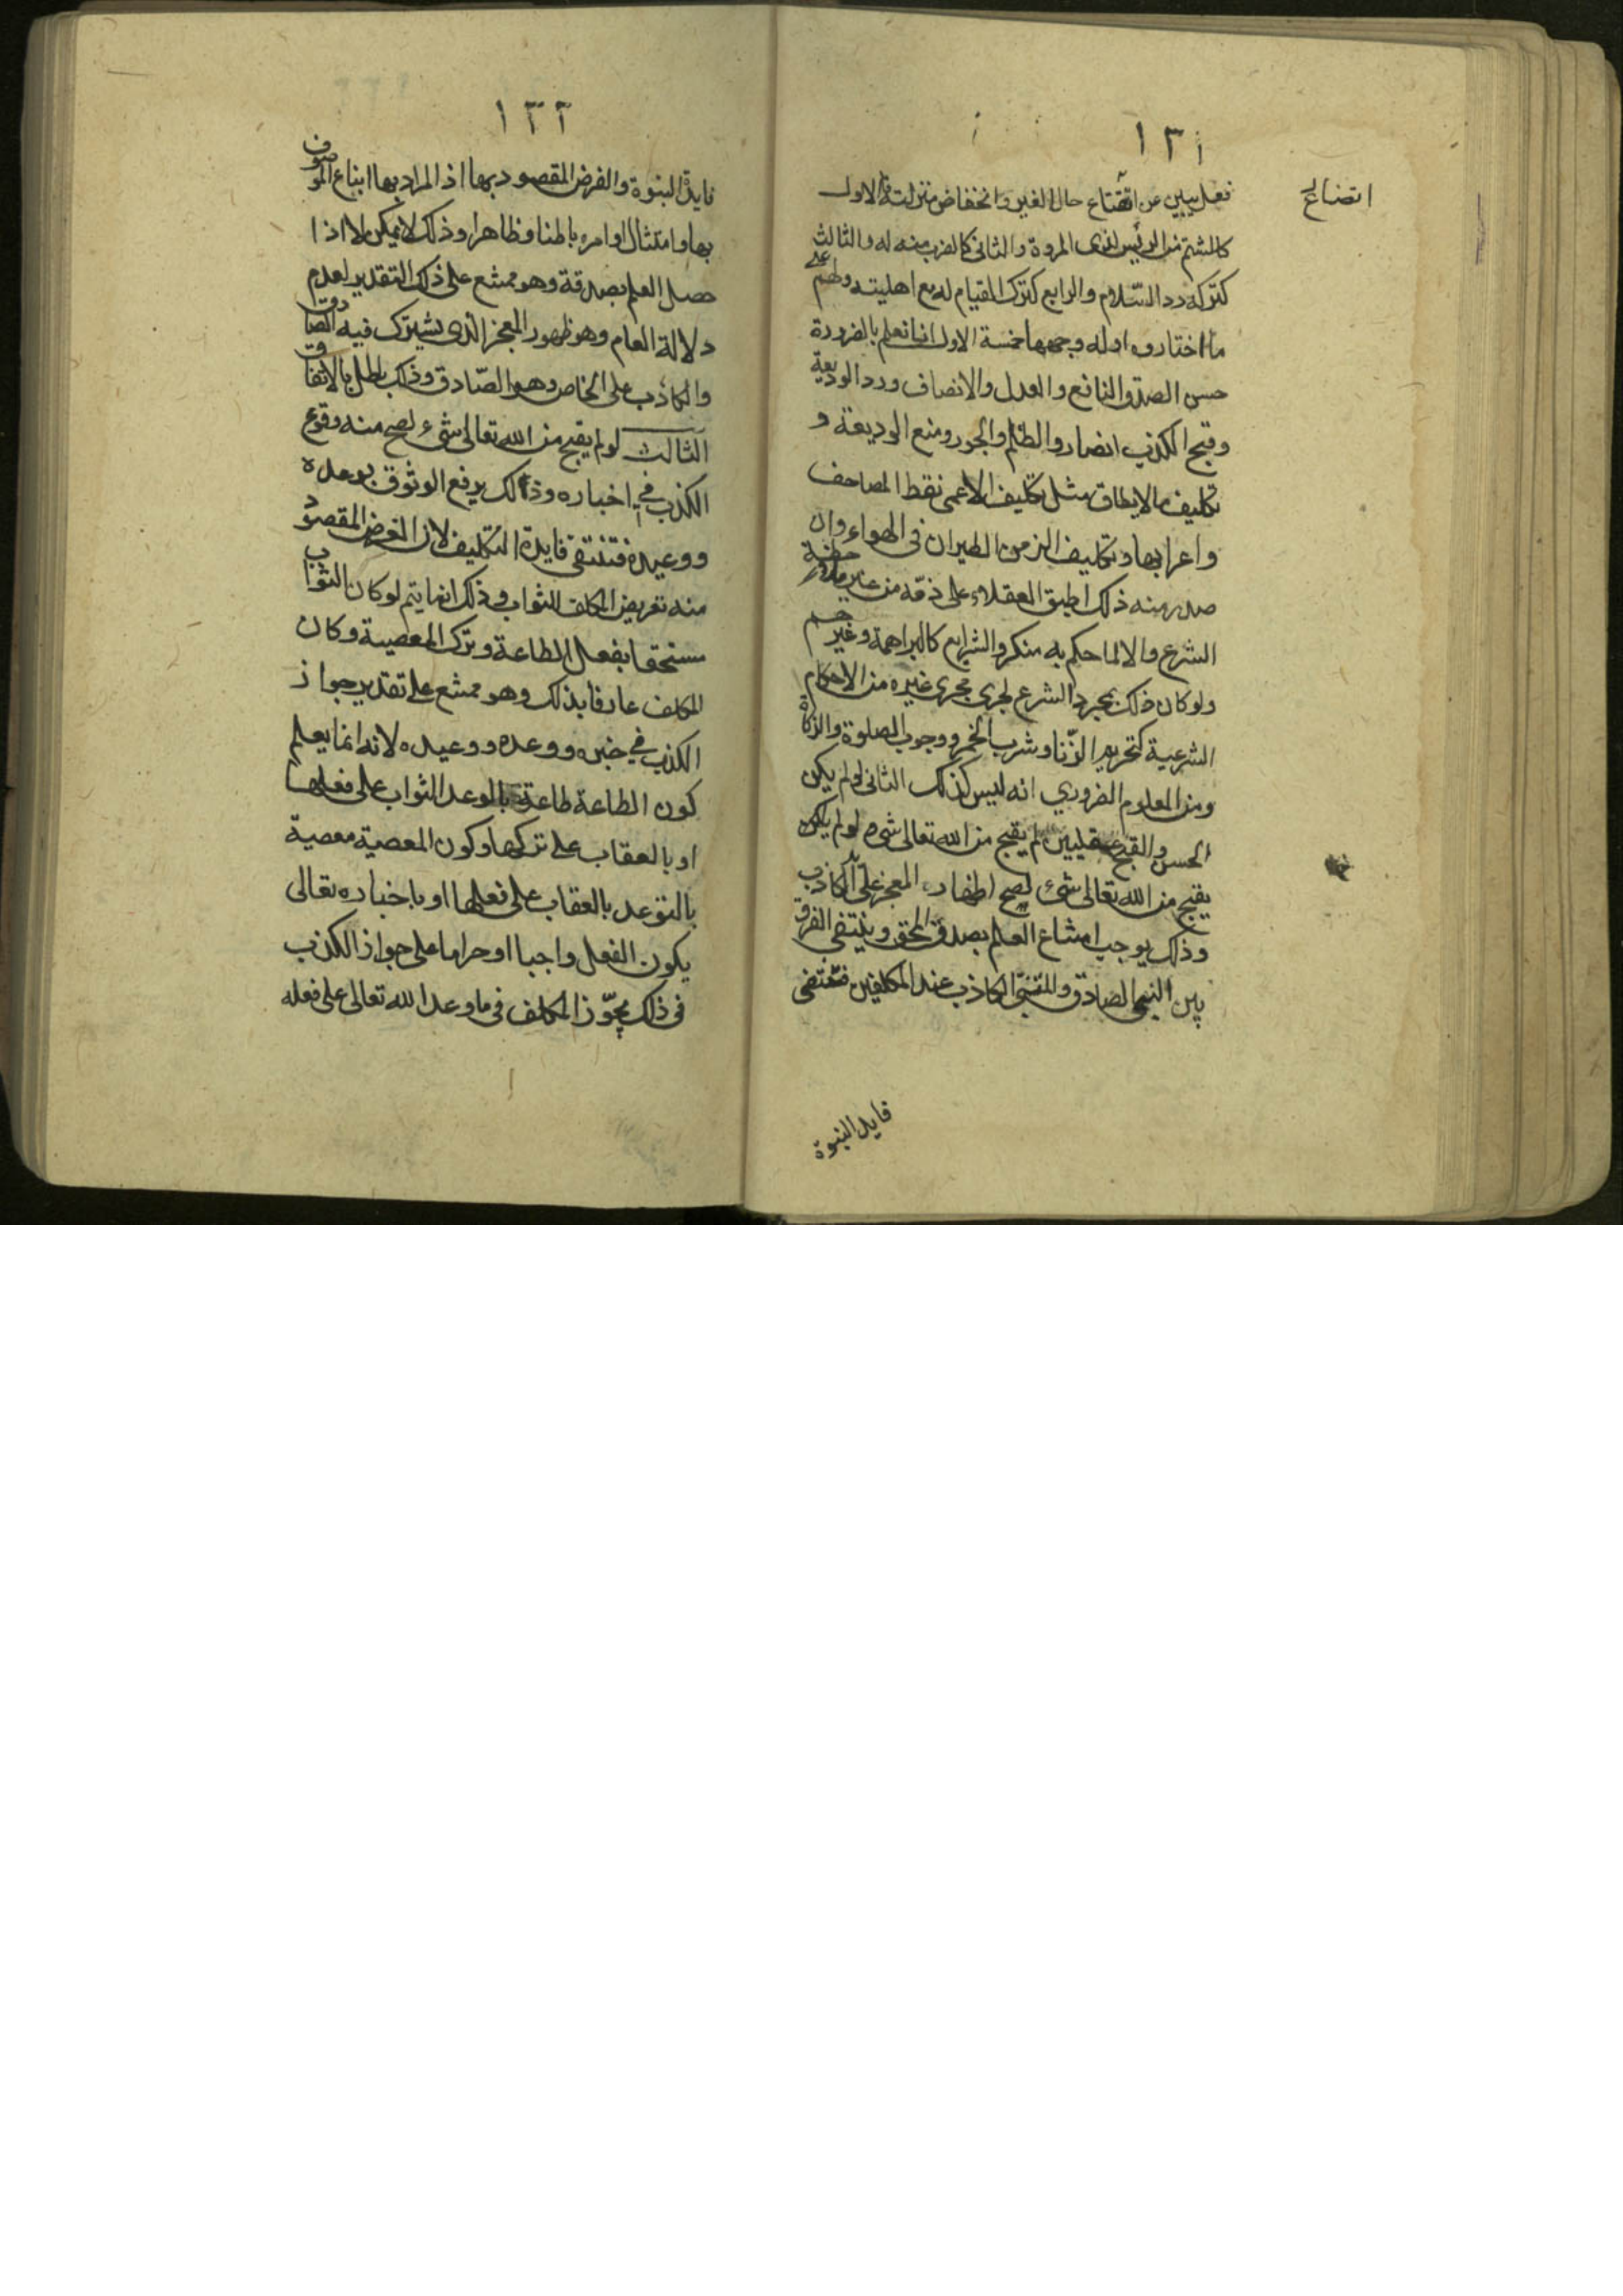 ١٣١
اتضاع
فعل يبين عن اتضاع حال الغير وانخفاض منزلته فالاول
كالشتم من الرئيس لذوى المروة والثانى كالضرب منه له والثالث
كتركه رد السّلام والرابع كترك القيام له مع اهليته ولهم على
ما اختاروه ادله وجهها خمسة الاول انا نعلم بالضرورة
حسن الصدق النافع والعدل والانصاف ورد الوديعة
وقبح الكذب الضار والظلم والجور ومنع الوديعة و
تكليف مالايطاق مثل تكليف الاعمى نقط المصاحف
واعرابها وتكليف الزمن الطيران فى الهواء وان
صدر منه ذلك اطبق العقلاء على ذمّه من غير ملاحظة
الشرع والا لما حكم به منكروا الشرايع كالبراهمة وغيرهم
ولو كان ذلك بمجرد الشرع لجرى مجرى غيره من الاحكام
الشرعية كتحريم الزّنا وشرب الخمر ووجوب الصلوة والزكاة
ومن المعلوم الضروري انه ليس كذلك الثانى لو لم يكن
الحسن والقبح عقليين لم يقبح من الله تعالى شىء لو لم يكن
يقبح من الله تعالى شئ لصح اظهار المعجز على الكاذب
وذلك يوجب امتناع العلم بصدق المحق وينتفى الفرق
بين النبى الصادق والمتنبّى الكاذب عند المكلفين فتنتفى
فايدة النبوة
١٣٢
فايدة النبوة والغرض المقصود بها اذ المراد بها اتباع الموصوف
بها وامتثال اوامره باطنا وظاهرا وذلك لا يمكن الا اذا
حصل العلم بصدقه وهو ممتنع على ذلك التقدير لعدم
دلالة العام وهو ظهور المعجز الذى يشترك فيه الصادق
والكاذب على الخاص وهو الصّادق وذلك باطل بالاتفاق
الثالث لو لم يقبح من الله تعالى شىء لصح منه وقوع
الكذب في اخباره وذلك يرفع الوثوق بوعده
ووعيده فتنتفى فايدة التكليف لان الغرض المقصود
منه تعريض المكلف للثواب وذلك انما يتم لو كان الثواب
مستحقا بفعل الطاعة وترك المعصية وكان
المكلف عارفا بذلك وهو ممتنع على تقدير جواز
الكذب في خبره ووعده ووعيده لانه انما يعلم
كون الطاعة طاعة بالوعد الثواب على فعلها
او بالعقاب على تركها وكون المعصية معصية
بالتوعد بالعقاب على فعلها او باخباره تعالى
يكون الفعل واجبا او حراما على جواز الكذب
فى ذلك يجوّز المكلف فى ما وعد الله تعالى على فعله